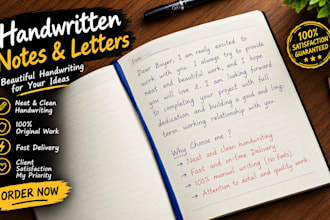 Handwritten
Notes & Letters
Beautiful Handwriting
for Your Ideas
Neat & Clean
Handwriting
100%
Original Work
Fast Delivery
Client
Satisfaction
My Priority
ORDER NOW
100%
SATISFACTION
GUARANTEED
Dear Buyer, I am really excited to
work with you. I always try to provide
neat and beautiful work, and I hope
you will love it. I am looking forward
to completing your project with full
dedication and building a good and long-
term working relationship with you.
Why Choose me ?
→ Neat and clean handwriting
→ Fast and on-time Delivery
→ 100% manual writing (No fonts)
→ Attention to detail and quality work.